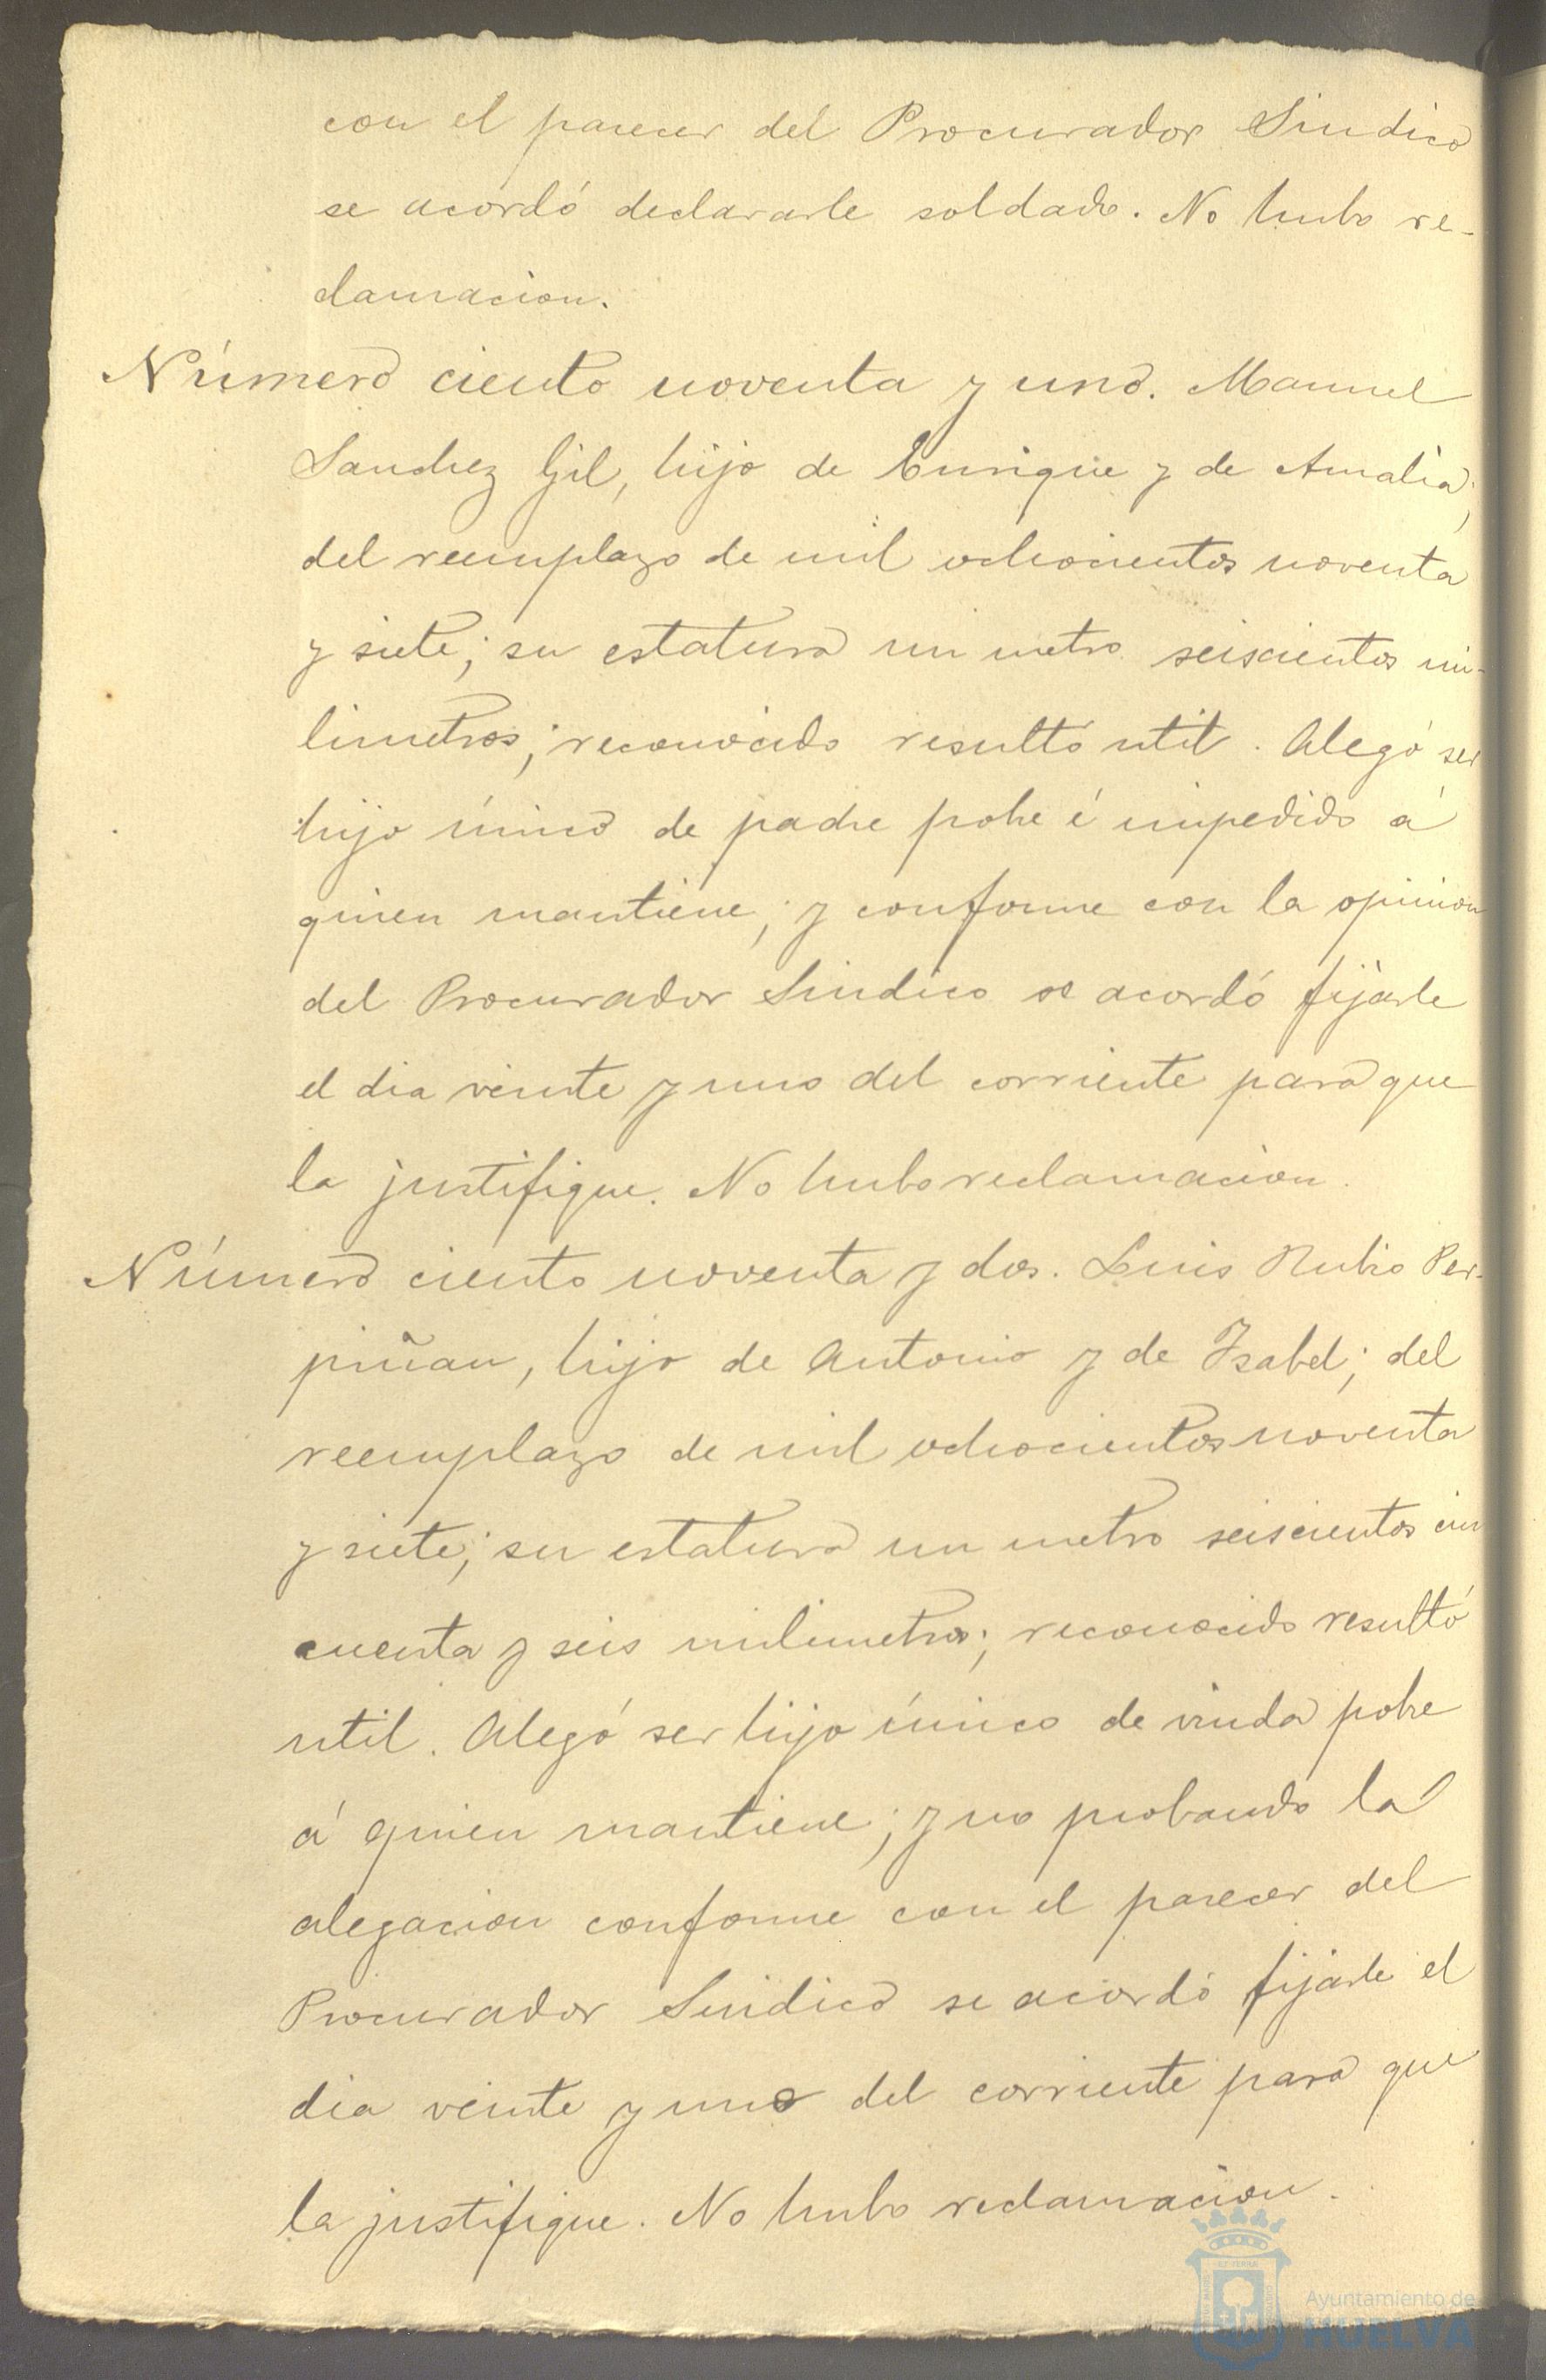 con el parecer del Procurador Sindico
se acordó declararle soldado. No hubo re-
clamacion.
Número ciento noventa y uno. Manuel
Sanchez Gil, hijo de Enrique y de Amalia;
del reemplazo de mil ochocientos noventa
y siete; su estatura un metro seiscientos mi-
limetros; reconocido resultó util. Alegó ser
hijo único de padre pobre é impedido á
quien mantiene; y conforme con la opinion
del Procurador Sindico se acordó fijarle
el dia veinte y uno del corriente para que
la justifique. No hubo reclamacion.
Número ciento noventa y dos. Luis Rubio Per-
piñan, hijo de Antonio y de Isabel; del
reemplazo de mil ochocientos noventa
y siete; su estatura un metro seiscientos cin
cuenta y seis milimetros; reconocido resultó
util. Alegó ser hijo único de viuda pobre
á quien mantiene; y no probando la
alegacion conforme con el parecer del
Procurador Sindico se acordó fijarle el
dia veinte y uno del corriente para que
la justifique. No hubo reclamacion.
Ayuntamiento de
HUELVA